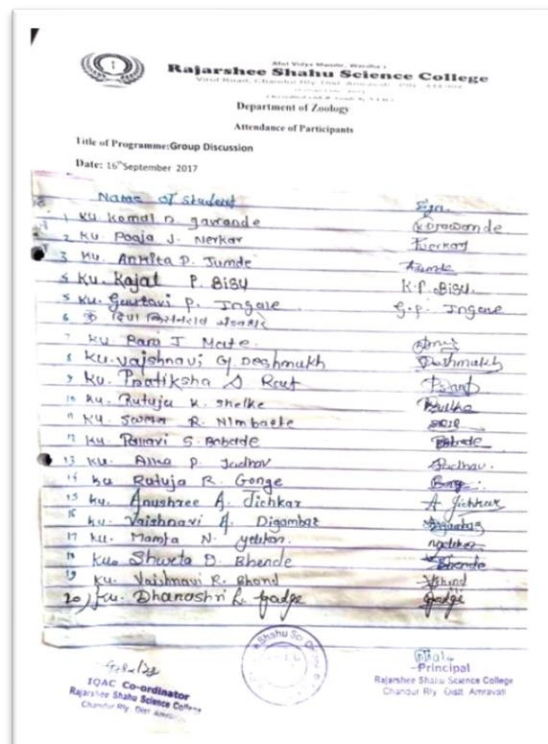 Rajarshee Shahu Science College
Department of Zoology
Attendance of Participants
Title of Programme:Group Discussion
Date: 16th September 2017
Name of student Sign
1 Ku. Komal D. gawande
2 Ku Pooja J. Nerkar Nerkar
3 Ku. Ankita P. Jumde Jumde
4 Ku. Kajal P. Bisu K.P. Bisu.
5 Ku. P. Ingale G.P. Ingane
6 कु
7 Ku. J Mate.
8 Ku. vaishnavi G Deshmukh Deshmukh
9 Ku. Pratiksha S Raut
10 Ku. Rutuja K. shelke
11 Ku. R. Nimbarte
12 Ku. Pallavi S. Bobade Bobade
13 Ku. Alka P. Jadhav Jadhav.
14 Ku Rutuja R. Gonge
15 Ku. Anushree A. Jichkar A Jichkar
16 Ku. Vaishnavi A. Digambar Digambar
17 Ku. Mamta N. yelikar
18 Ku. Shweta D. Bhende Bhende
19 Ku. Vaishnavi R. Bhond
20) Ku. Dhanashri R. gadge gadge
IQAC Co-ordinator
Rajarshee Shahu Science College
Chandur Rly. Dist. Amravati
Principal
Rajarshee Shahu Science College
Chandur Rly. Distt. Amravati